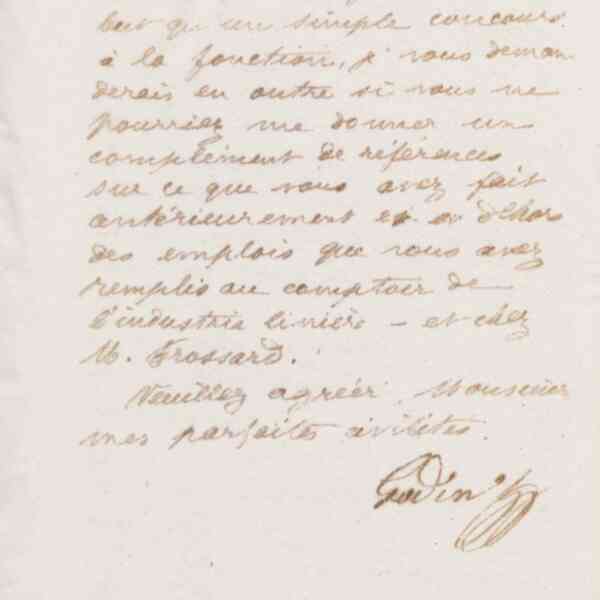 but qu'un simple concours
à la fonction, je vous deman
derais en outre si vous ne
pourriez me donner un
complément de références
sur ce que vous avez fait
antérieurement et en dehors
des emplois que vous avez
remplis au comptoir de
l'industrie linière - et chez
M. Frossard.
Veuillez agréer, Monsieur
mes parfaites civilités.
Godin